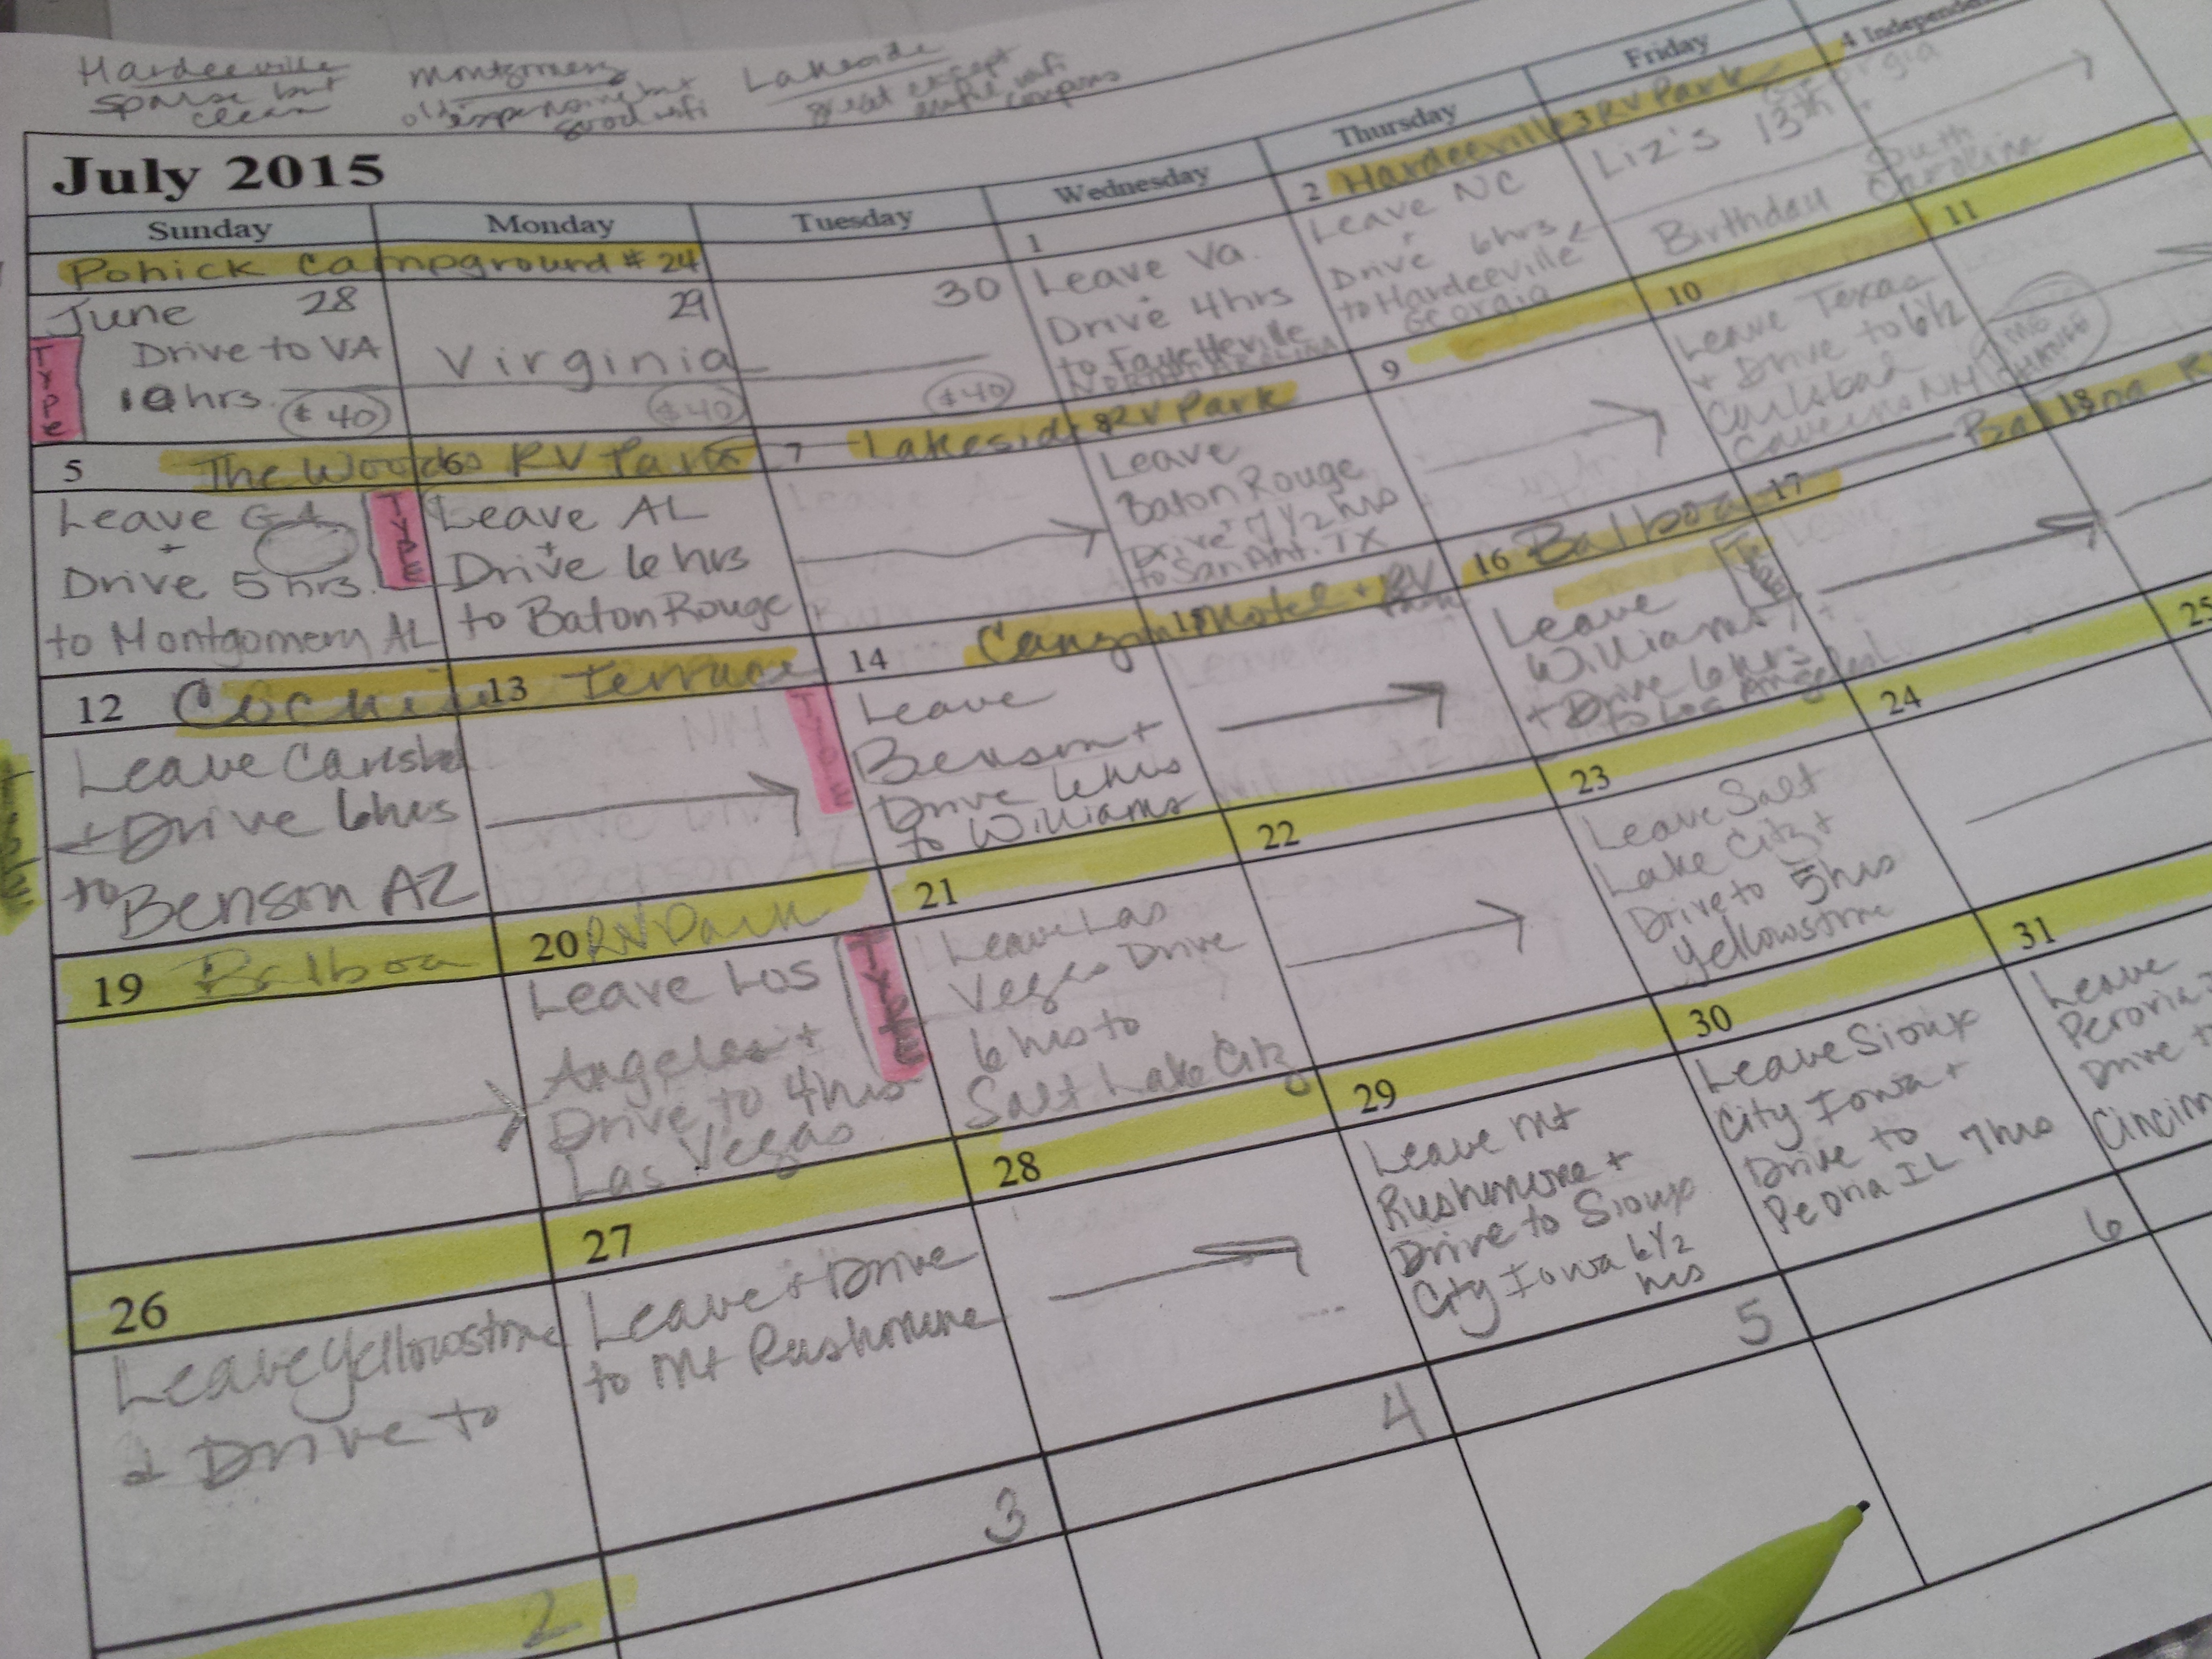 Hardeeville
sparse but
clean
Montgomery
old expensive but
good wifi
Lakeside
great except
awful wifi
coupons
July 2015
Sunday Monday Tuesday Wednesday Thursday Friday
Pohick Campground # 24
June 28
Drive to VA
10 hrs. $40
TYPE
29
Virginia
$40
30
$40
1
Leave Va.
+
Drive 4hrs
to Fayetteville
NORTH CAROLINA
2 Hardeeville RV Park
Leave NC
+
Drive 6hrs
to Hardeeville
Georgia
3
Liz's 13th
Birthday
4 Independen
Georgia
South
Carolina
5 The Woods RV Park
Leave GA
+
Drive 5 hrs.
to Montgomery AL
TYPE
6
Leave AL
+
Drive 6 hrs
to Baton Rouge
7 Lakeside RV Park
8
Leave
Baton Rouge
Drive + 7 1/2 hrs
to San Ant. TX
9
10
Leave Texas
+ Drive to 6 1/2
Carlsbad
Caverns NM
11
TIME
CHANGE
12
Leave Carlsbad
+ Drive 6hrs
to Benson AZ
13 Terrace
TYPE
14 Canyon Motel + RV
Park
Leave
Benson +
Drive 6hrs
to Williams
15
16 Balboa
Leave
Williams
+ Drive 6 hrs
to Los Angeles
17
Balboa R
18
19 Balboa
20 RV Park
Leave Los
Angeles +
Drive to 4hrs
Las Vegas
TYPE
21
Leave Las
Vegas Drive
6 hrs to
Salt Lake City
22
23
Leave Salt
Lake City +
Drive to 5 hrs
Yellowstone
24
25
26
Leave Yellowstone
+ Drive to
27
Leave + Drive
to Mt Rushmore
28
29
Leave Mt
Rushmore +
Drive to Sioux
City Iowa 6 1/2
hrs
30
Leave Sioux
City Iowa +
Drive to
Peoria IL 7hrs
31
Leave
Peroria
Drive t
Cincinn
2
3
4
5
6